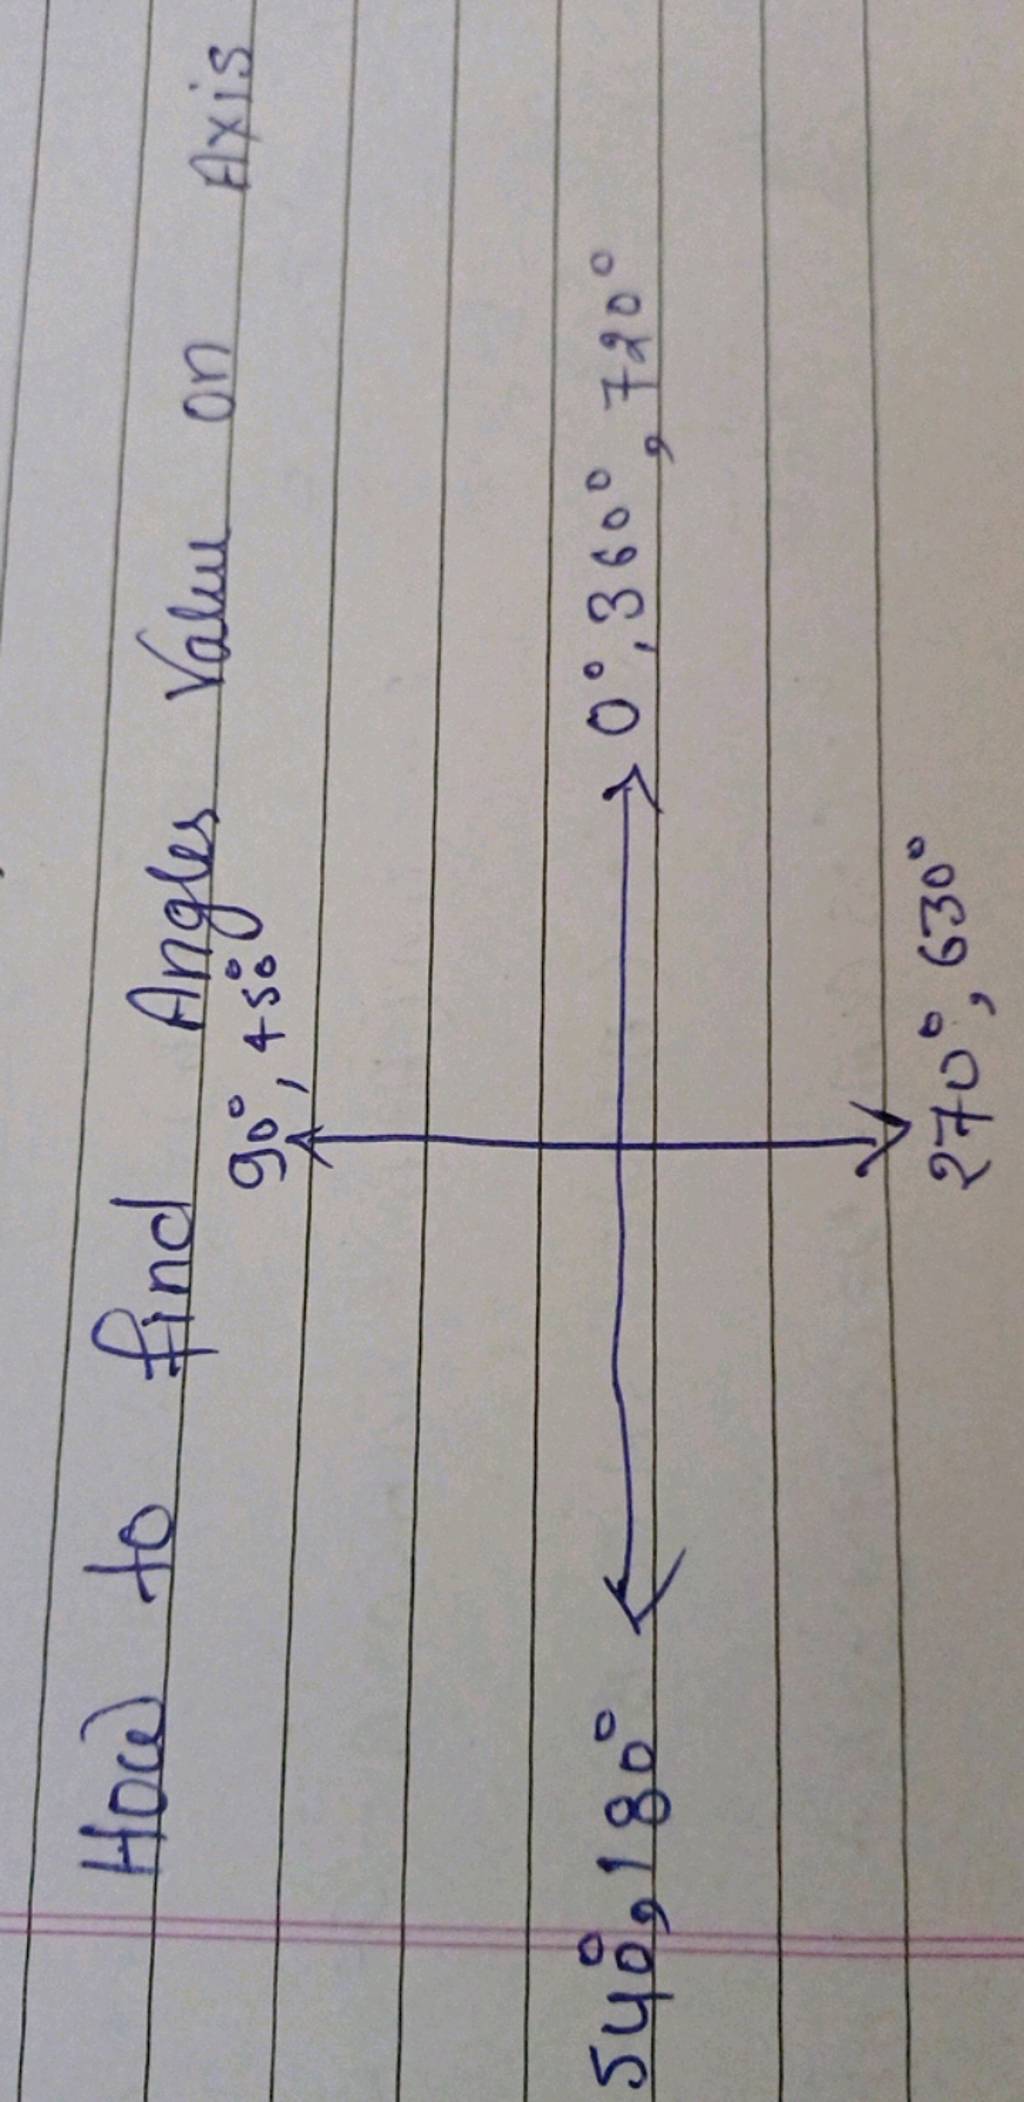 How to find Angles Value on Axis
90°, 450°
540°, 180°
0°, 360°, 720°
270°, 630°